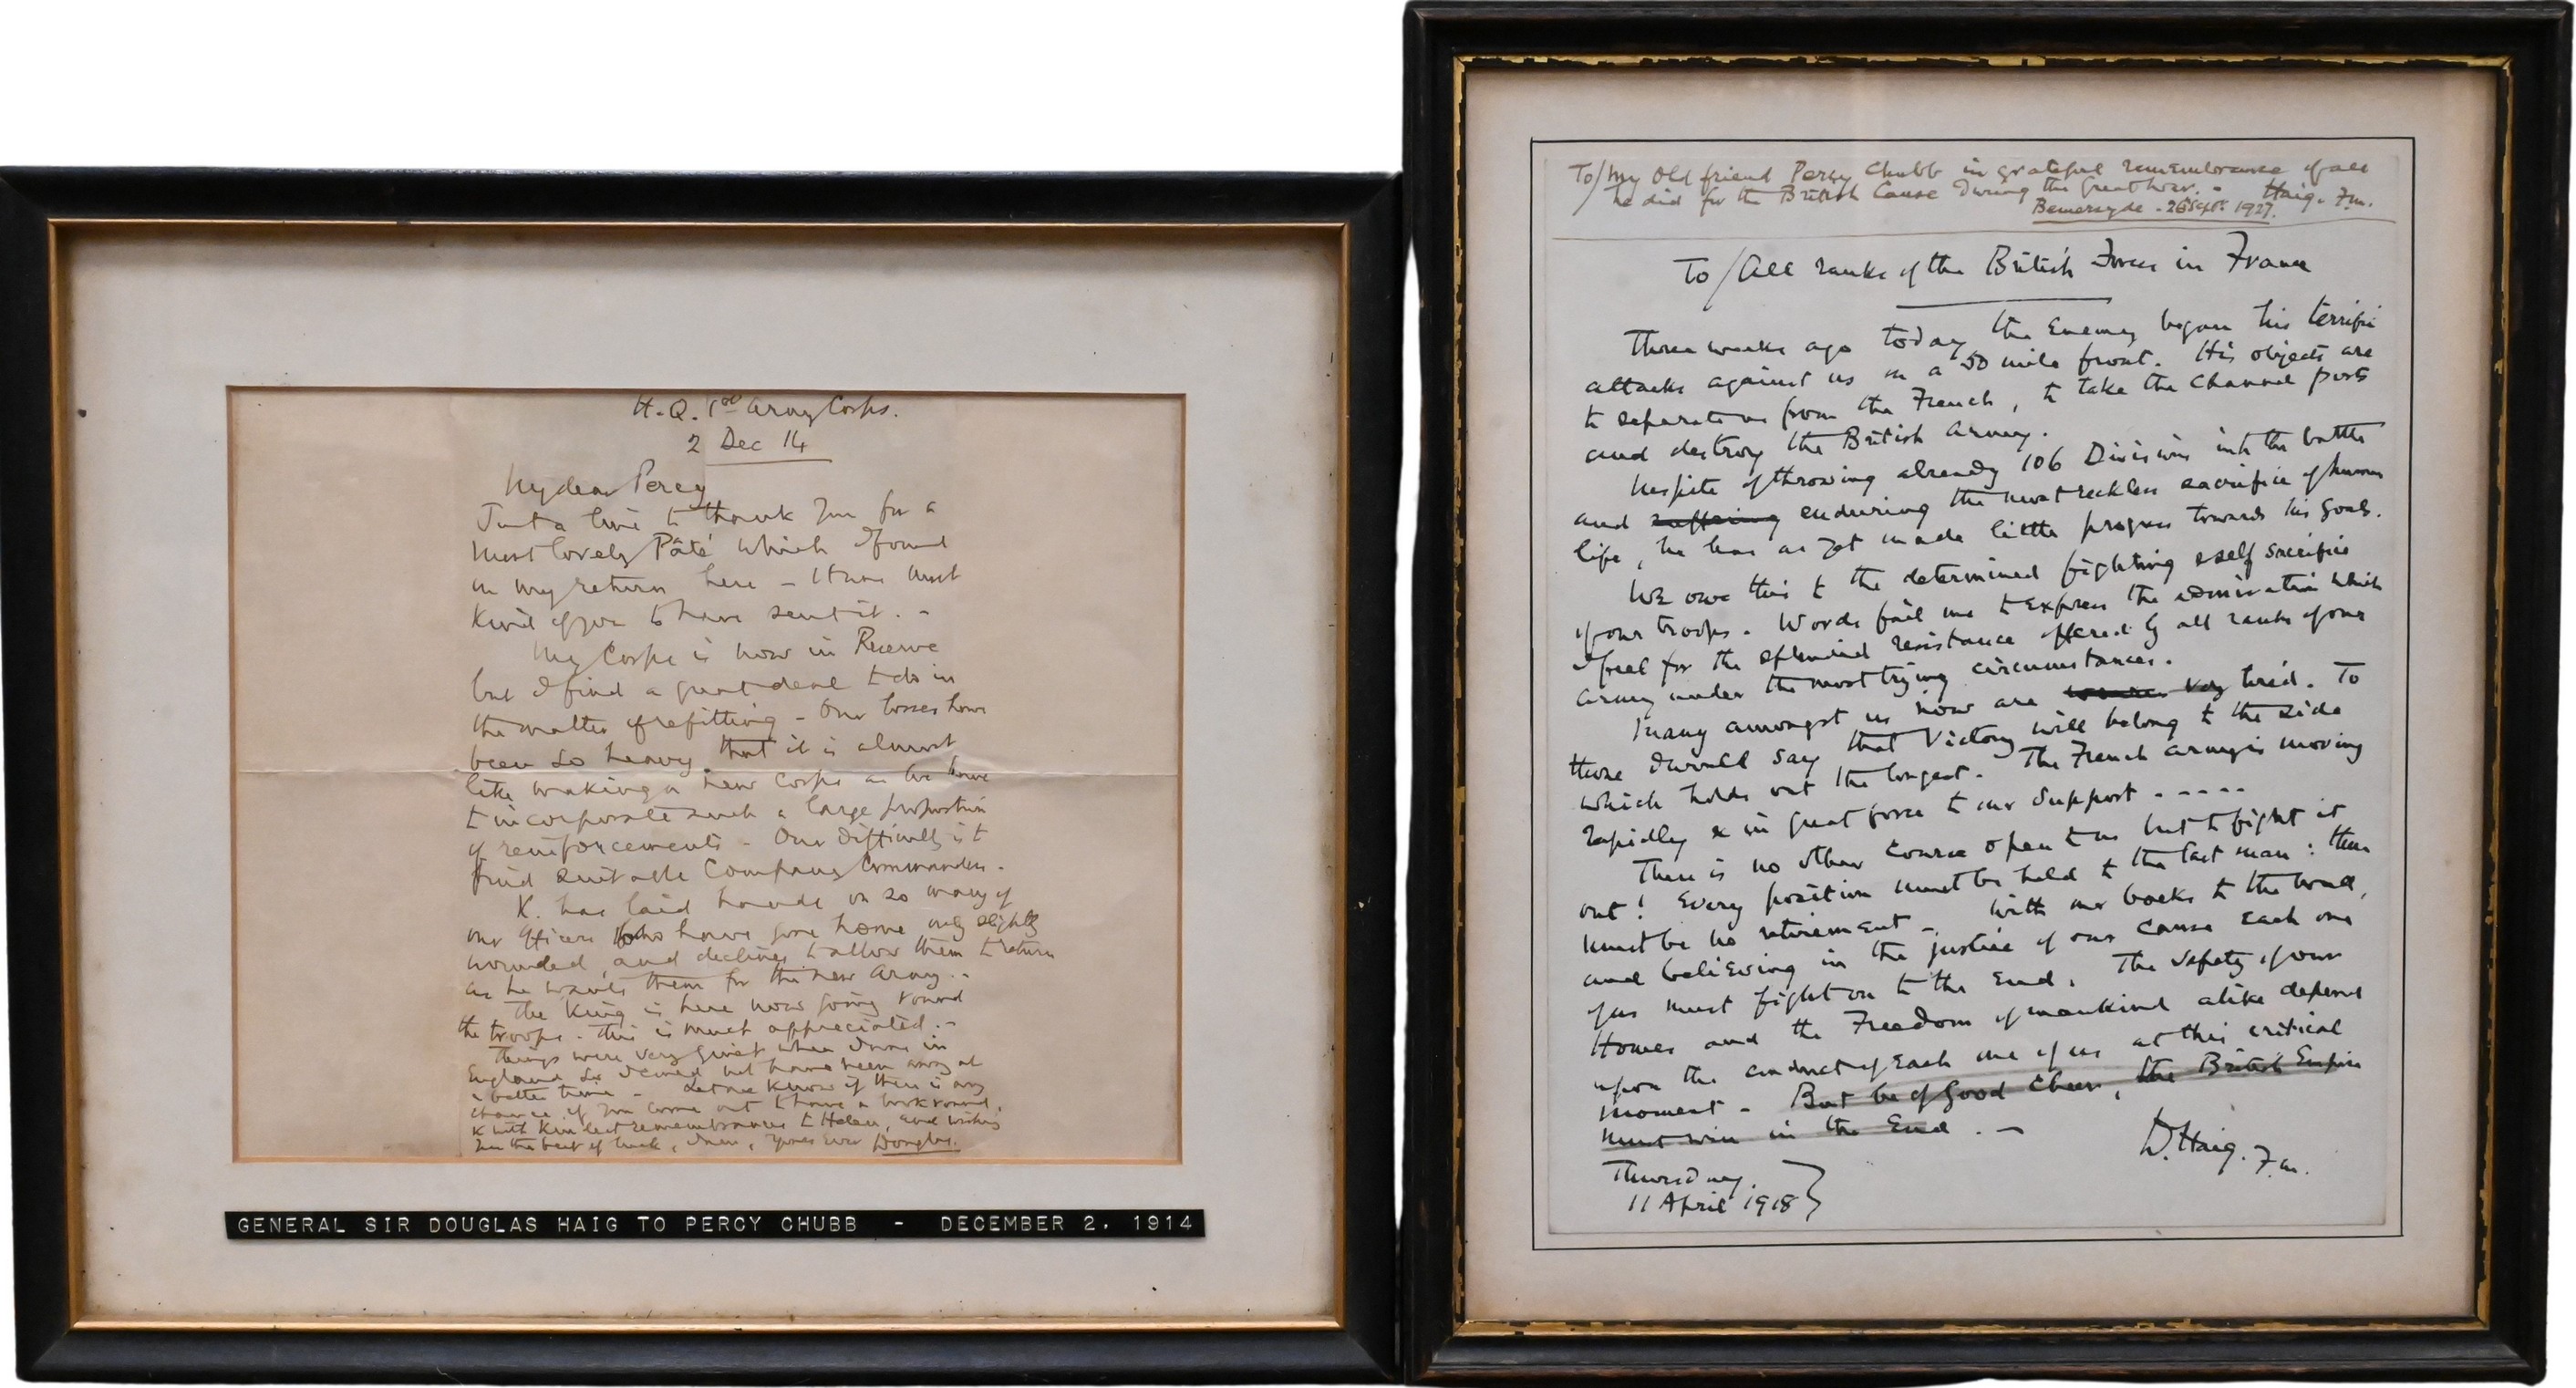 H.Q. 1st Army Corps.
2 Dec 14
My dear Percy
Just a line to thank you for a
most lovely Pâté which I found
on my return here - It was most
kind of you to have sent it. -
My Corps is now in Reserve
but I find a great deal to do in
the matter of refitting - Our losses have
been so heavy that it is almost
like making a new Corps as we have
to incorporate such a large proportion
of reinforcements - Our difficulty is to
find suitable Company Commanders.
K. has laid hands on so many of
our officers who have gone home only slightly
wounded, and declines to allow them to return
as he wants them for the new Army. -
The King is here now going round
the troops - this is much appreciated. -
Things were very quiet when I was in
England so I seized
a better time - Let me know if there is any
chance of you come out to have a look round,
& with kindest remembrances to Helen, and wishing
you the best of luck, I am, Yours ever Douglas.
GENERAL SIR DOUGLAS HAIG TO PERCY CHUBB - DECEMBER 2, 1914
To/ My Old friend Percy Chubb in grateful remembrance of all
he did for the British Cause during the Great War. - Haig. F.M.
Bemersyde - 26 Sept. 1927.
To/ All ranks of the British Forces in France
Three weeks ago today the Enemy began his terrific
attacks against us on a 50 mile front. His objects are
to separate us from the French, to take the Channel ports
and destroy the British Army.
Inspite of throwing already 106 Divisions into the battle
and suffering enduring the most reckless sacrifice of human
life, he has as yet made little progress towards his goals.
We owe this to the determined fighting & self sacrifice
of our troops. Words fail me to express the admiration which
I feel for the splendid resistance offered by all ranks of our
army under the most trying circumstances.
Many amongst us now are very tired. To
those I would say that Victory will belong to the side
which holds out the longest. The French Army is moving
rapidly & in great force to our support. - - - - -
There is no other course open to us but to fight it
out! Every position must be held to the last man: there
must be no retirement. With our backs to the wall,
and believing in the justice of our cause each one
of us must fight on to the end. The safety of our
Homes and the Freedom of mankind alike depend
upon the conduct of each one of us at this critical
moment - But be of Good cheer, the British Empire
must win in the End. -
D. Haig. F.M.
Thursday.
11 April 1918